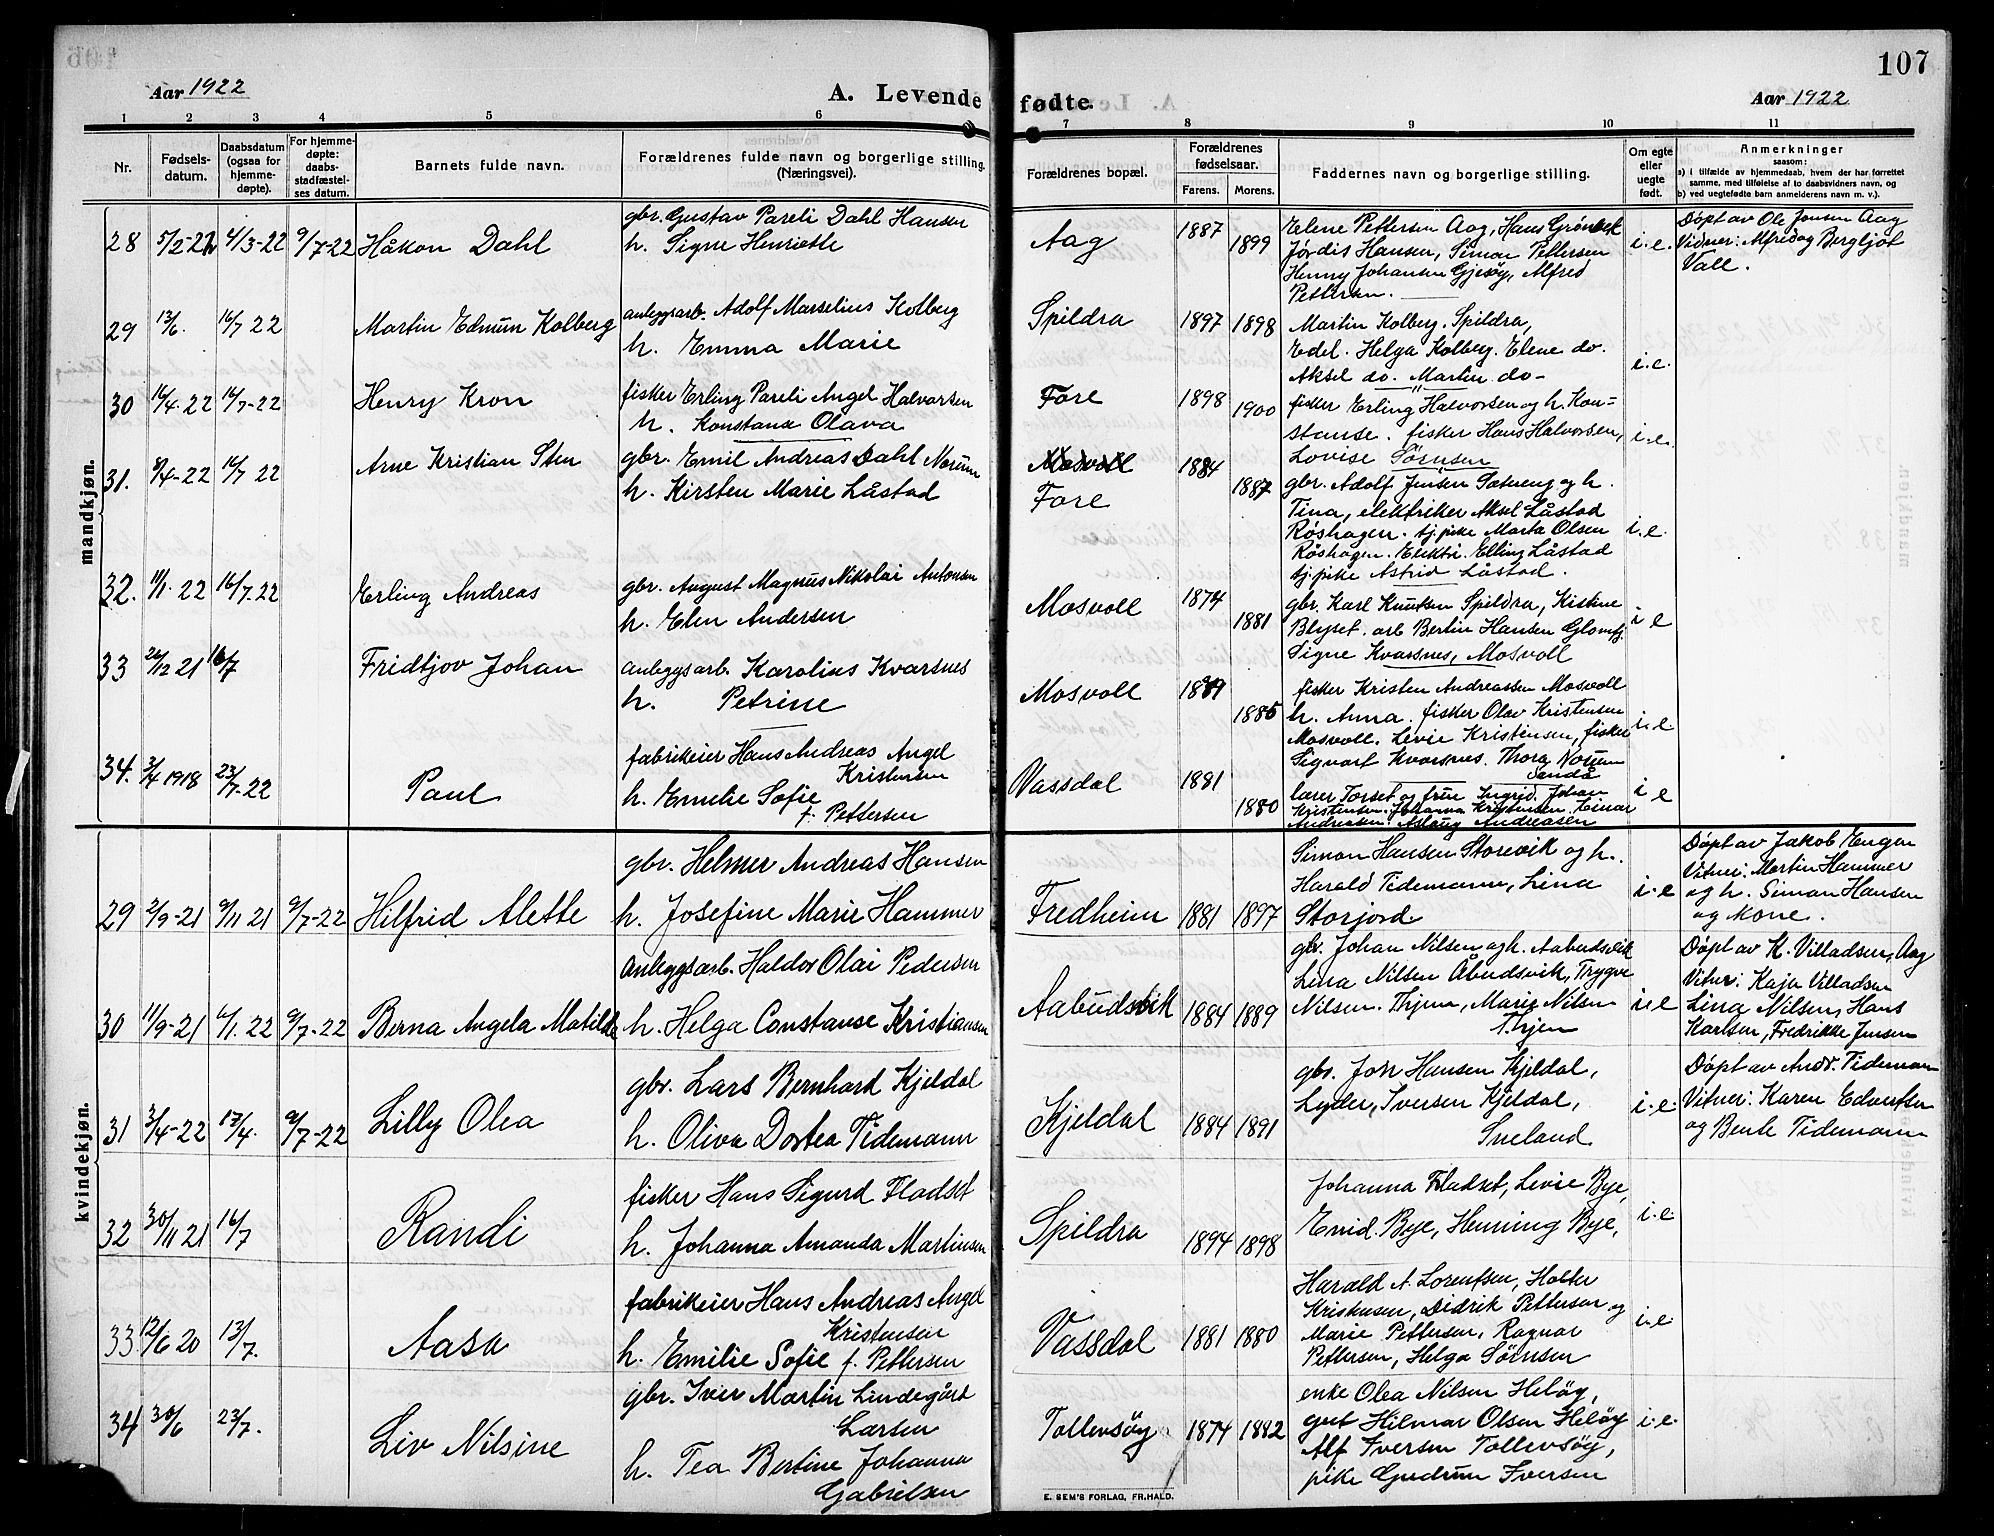 107
Aar 1922
A. Levende fødte.
Aar 1922
1 2 3 4 5 6 7 8 9 10 11
Nr.
Fødsels-
datum.
Daabsdatum
(ogsaa for
hjemme-
døpte).
For hjemme-
døpte:
daabs-
stadfæstel-
ses datum.
Barnets fulde navn.
Forældrenes fulde navn og borgerlige stilling.
(Næringsvei).
Forældrenes bopæl.
Forældrenes
fødselsaar.
Farens.
Morens.
Faddernes navn og borgerlige stilling.
Om egte
eller
uegte
født.
Anmerkninger
saasom:
a) i tilfælde av hjemmedaab, hvem der har forrettet
samme, med tilføielse af to daabsvidners navn, og
b) ved uegtefødte barn anmelderens navn m. v.)
mandkjøn.
28 5/2-22 4/3-22 9/7-22 Håkon Dahl
gbr. Gustav Pareli Dahl Hansen
h. Signe Henriette
Aag 1887 1899
Elene Pettersen Aag, Hans Grønvik
Jørdis Hansen, Simon Pettersen
Henny Johansen Gjesøy, Alfred
Pettersen.
i.e.
Døpt av Ole Jensen Aag
Vidner: Alfred og Bergljot
Vall.
29 13/6. 16/7 22 Martin Edmun Kolberg
anleggsarb. Adolf Marselius Kolberg
h. Emma Marie
Spildra 1897 1898
Martin Kolberg. Spildra,
Edel. Helga Kolberg. Elene do.
Aksel do. Martin do-
i.e.
30 16/4.22 16/7-22 Henry Kron
fisker Erling Pareli Angel Halvorsen
h. Konstanse Olava
Fore 1898 1900
fisker Erling Halvorsen og h. Kon=
stanse. fisker Hans Halvorsen,
Lovise Sørensen
i.e.
31. 8/4-22 16/7 22 Arne Kristian Sten
gbr. Emil Andreas Dahl Norum
h. Kirsten Marie Låstad
Mosvoll
Fore 1884 1887
gbr. Adolf Jensen Sætveng og h.
Tina, elektriker Aksel Låstad
Røshagen. tj. pike Marta Olsen
Røshagen. Elektr. Elling Låstad
tj. pike Astrid Låstad.
i.e.
32. 11/1. 22 16/7.22 Erling Andreas
gbr. August Magnus Nikolai Antonsen
h. Elen Andersen
Mosvoll 1874 1881
gbr. Karl Knutsen Spildra, Kistine
Blyset. arb Bertin Hansen Glomfj.
Signe Kvarsnes, Mosvoll
i e
33 26/12 21 16/7 Fridtjov Johan
anleggsarb. Karolius Kvarsnes
h. Petrine
Mosvoll 1885
fisker Kristen Andreassen Mosvoll
h. Anna. fisker Olav Kristensen
Mosvoll. Levie Kristensen, fisker
Sigvart Kvarsnes. Thora Norum
Sandå
i.e.
34. 3/4 1918 23/7-22 Paul
fabrikeier Hans Andreas Angel
Kristensen
h. Emilie Sofie
f. Pettersen
Vassdal 1881 1880
lærer Torset og frue Ingrid. Johan
Kristensen. Johanna Kristensen. Einar
Andreasen. Aslaug Andreasen
i e
kvindekjøn.
29 2/9-21 9/11 21 9/7-22 Hilfrid Alette
gbr. Helmer Andreas Hansen
h. Josefine Marie Hammer
Fredheim 1881 1897
Simon Hansen Storevik og h.
Harald Tidemann, Lina
Storjord.
i.e
Døpt av Jakob Engen
Vitner: Martin Hammer
og h. Simon Hansen
og Kone.
30 11/9-21 6/1. 22 9/7-22 Berna Angela Matilde
anleggsarb. Haldor Olai Pedersen
h. Helga Constanse Kristiansen
Aabudsvik 1884 1889
gbr. Johan Nilsen og h. Aabudsvik
Lina Nilsen Åbudsvik, Trygve
Nilsen. Thjem, Marie Nilsen
Thjem
i.e
Døpt av K. Villadsen, Aag
Vitner: Kaja Villadsen
Lina Nilsen, Hans
Karlsen, Fredrikke Jensen
31 3/4-22 17/4. 9/7-22 Lilly Olea
gbr. Lars Bernhard Kjeldal
h. Oliva Dortea Tidemann
Kjeldal 1884 1891
gbr. Joh Hansen Kjeldal,
Lyder, Iversen Kjeldal,
Sneland.
i.e.
Døpt av Andr. Tidemann
Vitner: Karen Edvartsen
og Bentе Tidemann
32 30/11 21 16/7 Randi
fisker Hans Sigurd Fladset
h. Johanna Amanda Martinsen
Spildra 1894 1898
Johanna Fladset, Levie Bye,
Emid. Bye, Henning Bye,
i.e.
33 12/6 20 13/7. Aasa
fabrikeier Hans Andreas Angel
Kristensen
h. Emilie Sofie f. Pettersen
Vassdal 1881 1880
Harald A. Lorentsen, Holter
Kristensen, Didrik Pettersen og
Marie Pettersen, Ragnar
Pettersen, Helga Sørensen
i.e.
34 30/6 23/7. Liv Nilsine
gbr. Iver Martin Lindegård
Larsen
h. Tea Bertine Johanna
Gabrielsen
Tollevsøy 1874 1882
enke Olea Nilsen Heløy,
gut Hilmar Olsen Heløy
Alf Iversen Tollevsøy,
pike Gudrun Iversen
i.e.
E. SEM'S FORLAG, FR.HALD.